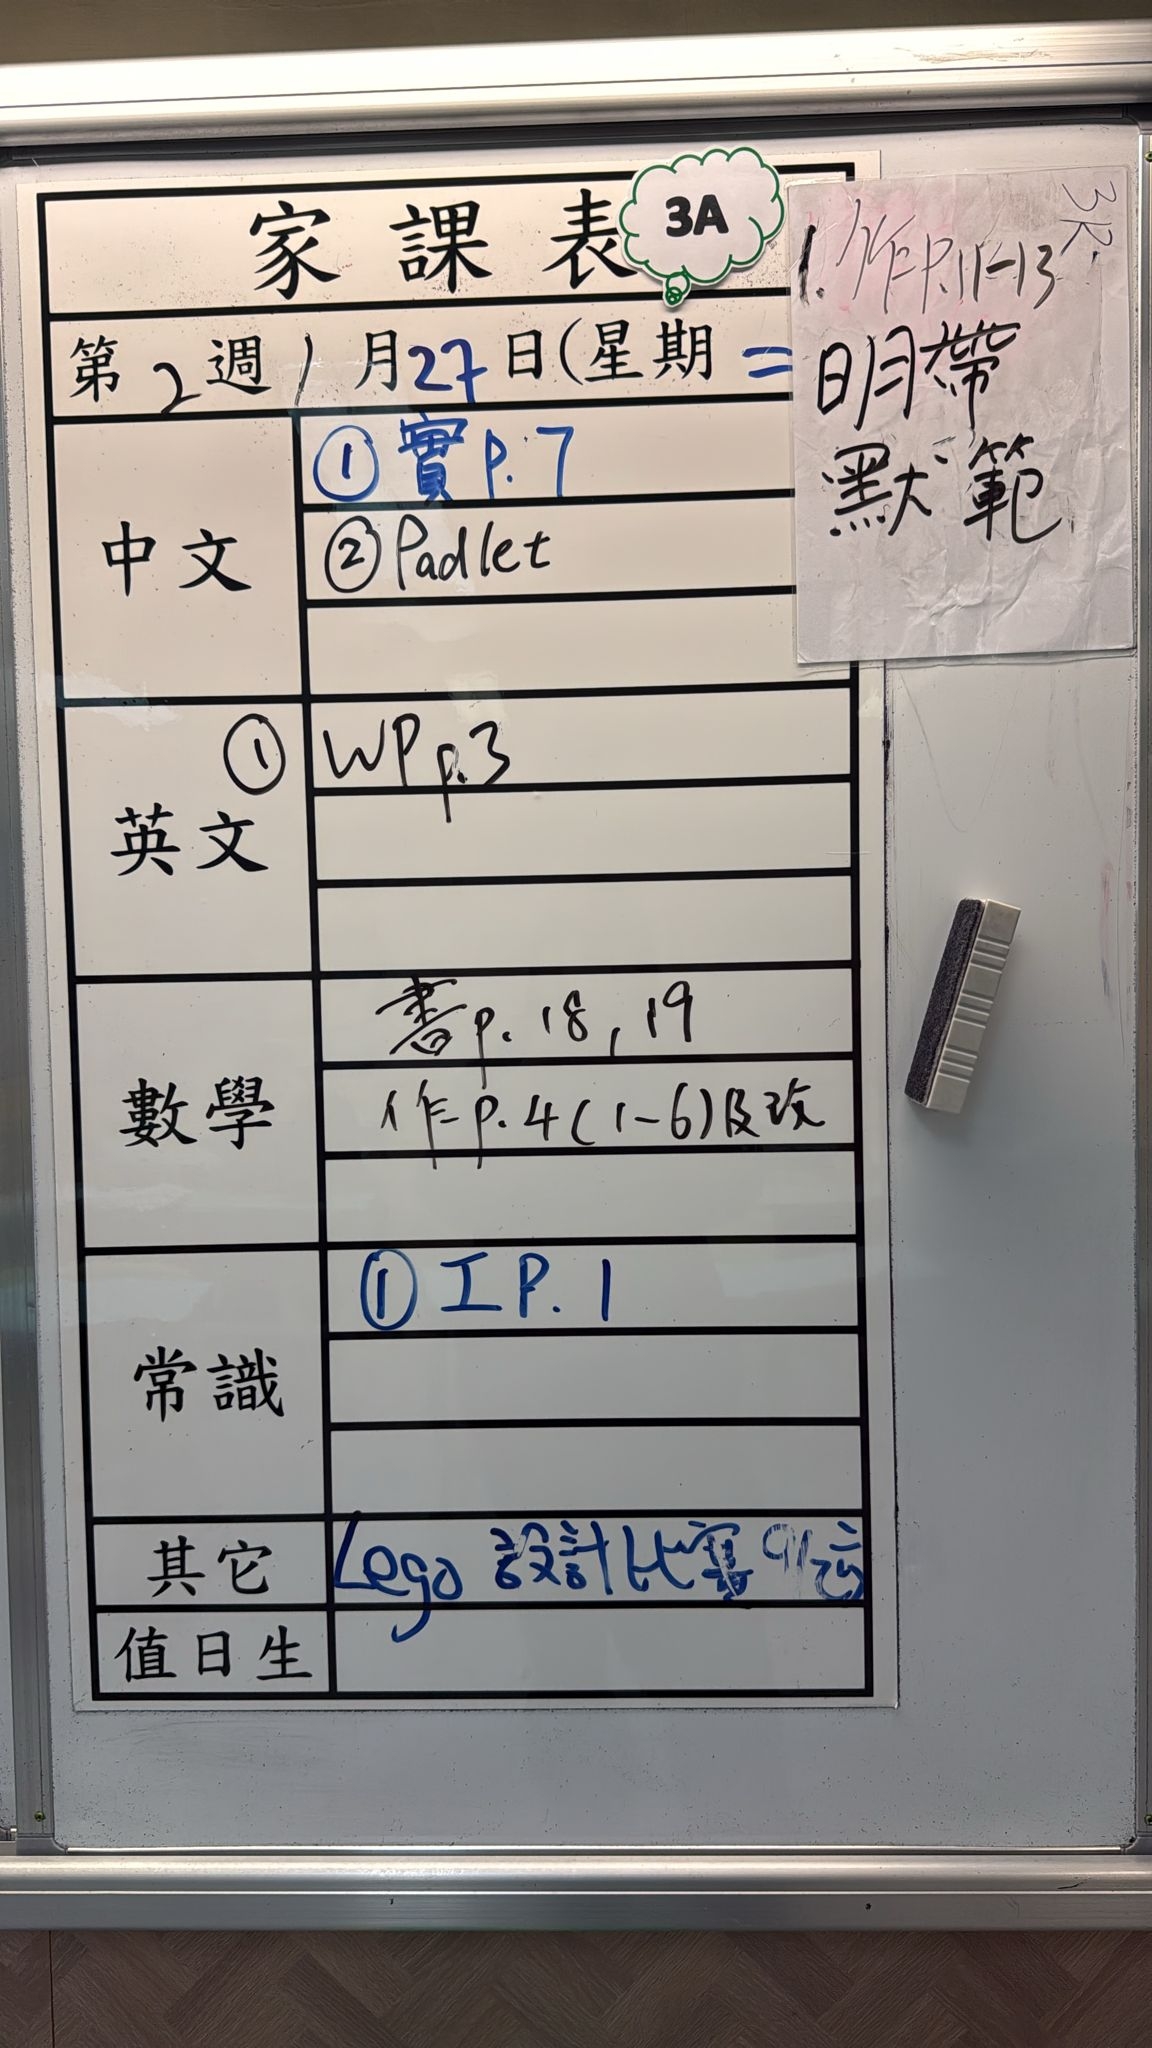 家課表
3A
第2週 1月27日(星期二
中文
① 實 p.7
② Padlet
英文
① WP p.3
數學
書 p.18,19
作 p.4 (1-6) 及改
常識
① 工 P.1
其它
Lego 設計比賽
值日生
3K
1. 作 P.11-13
明帶
默範